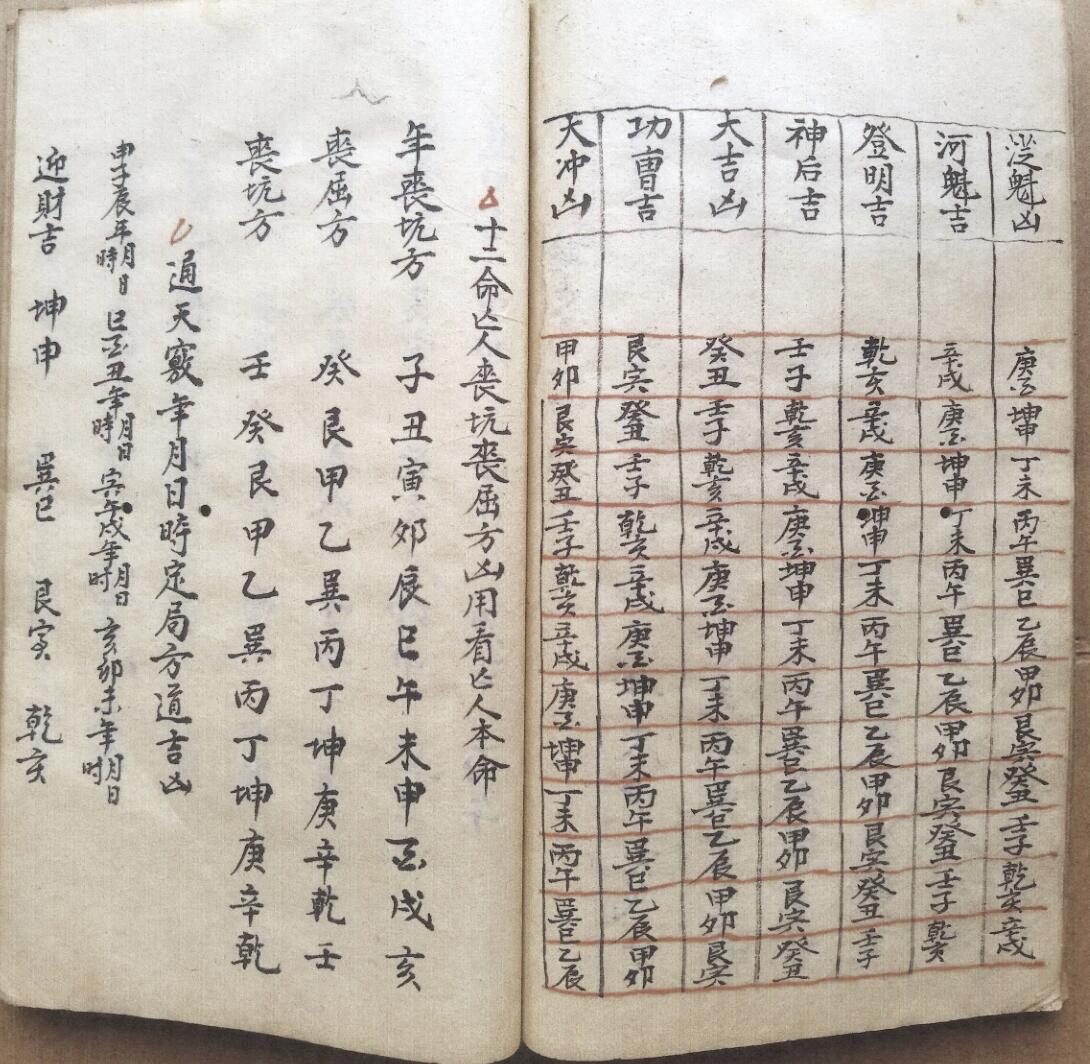 涖魁凶 庚酉 坤申 丁未 丙午 巽巳 乙辰 甲卯 艮寅 癸丑 壬子 乾亥 辛戌
河魁吉 辛戌 庚酉 坤申 丁未 丙午 巽巳 乙辰 甲卯 艮寅 癸丑 壬子 乾亥
登明吉 乾亥 辛戌 庚酉 坤申 丁未 丙午 巽巳 乙辰 甲卯 艮寅 癸丑 壬子
神后吉 壬子 乾亥 辛戌 庚酉 坤申 丁未 丙午 巽巳 乙辰 甲卯 艮寅 癸丑
大吉凶 癸丑 壬子 乾亥 辛戌 庚酉 坤申 丁未 丙午 巽巳 乙辰 甲卯 艮寅
功曹吉 艮寅 癸丑 壬子 乾亥 辛戌 庚酉 坤申 丁未 丙午 巽巳 乙辰 甲卯
大冲凶 甲卯 艮寅 癸丑 壬子 乾亥 辛戌 庚酉 坤申 丁未 丙午 巽巳 乙辰
十二命亡人丧坑丧屈方凶用看亡人本命
年丧坑方 子丑寅卯辰巳午未申酉戌亥
丧屈方 癸艮甲乙巽丙丁坤庚辛乾壬
丧坑方 壬癸艮甲乙巽丙丁坤庚辛乾
通天竅年月日時定局方道吉凶
申子辰年月日時 巳酉丑年月日時 寅午戌年月日时 亥卯未年月日时
迎財吉 坤申 巽巳 艮寅 乾亥